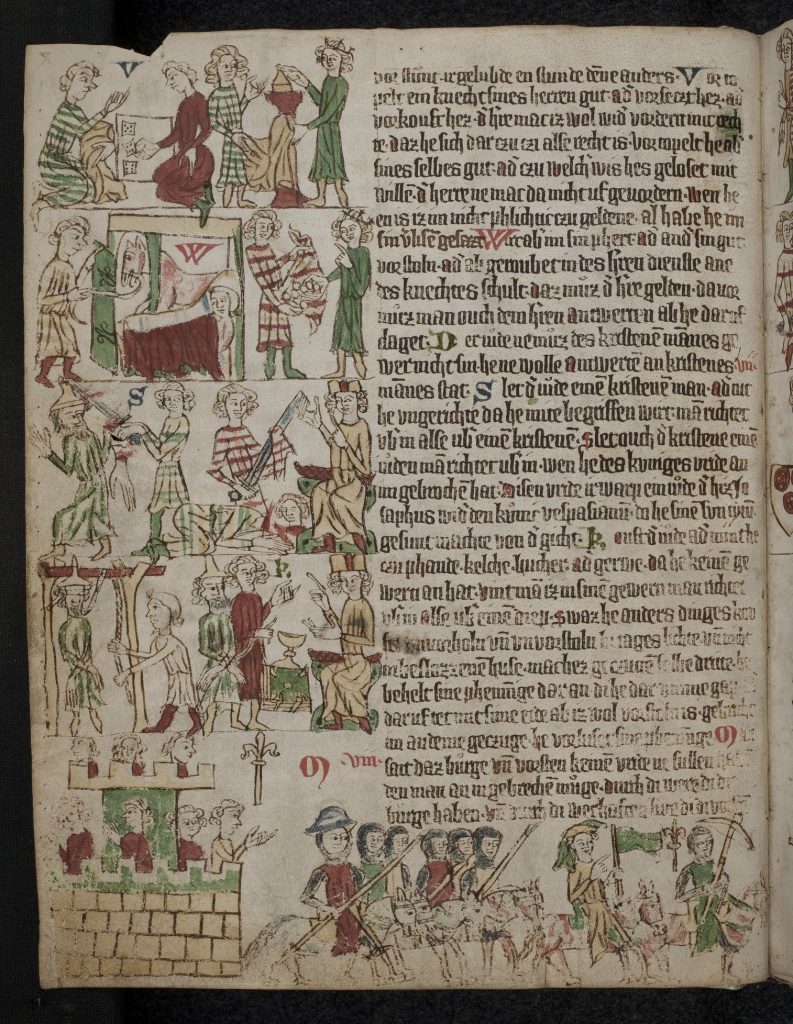 vor stunt ir gelubde en stunde dēne anders · Vor to
pelt ein knecht sines herren gut ad' vorseczt hez · ad'
vorkouft hez · d' h're mac iz wol wid' vordern mit rech
te · daz he sich dar czu czi alse recht is · vortopelt he ab'
sines selbes gut · ad' czu welch' wis hes geloset mit
willē · d' herre ne mac da nicht uf gevordern · wen he
en is iz im nicht phlichtic czu geldene · al habe he im
sin gesazt Wirt ab' im sin phert · ad' and' sin gut
vorstoln · ad' ab geroubet in des h'ren dienste ane
des knechtes schult · daz muz d' h're gelden · da vor
muz man ouch dem h'ren antwerten ab he daruf
claget · D er iude ne muz des kristenē mānes ge
wer nicht sin he ne wolle antwertē an kristenes
mānes stat · S let d' iude einē kristenē man · ad' tut
he ungerichte da he mite begriffen wirt · mā richtet
ub' in alse ub' einē kristenē · Slet ouch d' kristene einē
iuden mā richtet ub' in · wen he des kuniges vride an
im gebrochē hat · Disen vride irwarp ein iude d' hez Jo
saphus wid' den kunic vespasianū · do he sinē sun
gesunt machte von d' gicht · K ouft d' iude ad' nimt he
czu phande · kelche · bucher · ad' gerwe · da he keinē ge
wern an hat · vint man iz in sinē gewern man richtet
ub' in alse ub' einē dieb · Swaz he anders dinges kou
fet unvorholn un unvorstoln bi tages lichte un nicht
in beslozzenē huse · mac hez geczugē selbe dritte · he
behelt sine phenninge dar an di he dar umme gap
daruf tet mit sime eide ab iz wol vorstoln is · gebricht
im an deme geczuge · he vorluset sine phenninge M
sait daz burge un vorsten keinē vride ne sullen habē
den man an in gebrechē muge · durch di were di di
burge habē · un durch di
M